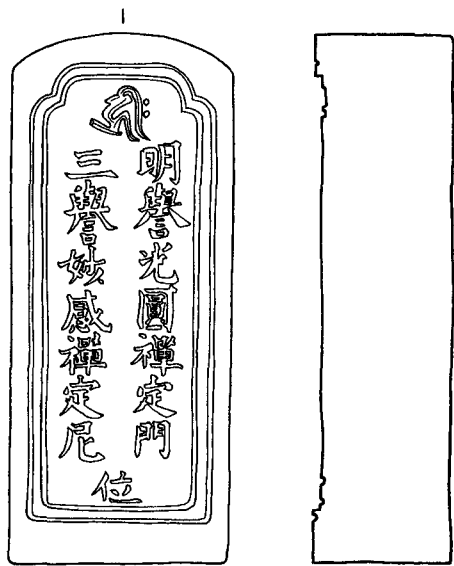 明譽光圓禪定門
三譽妙感禪定尼
位